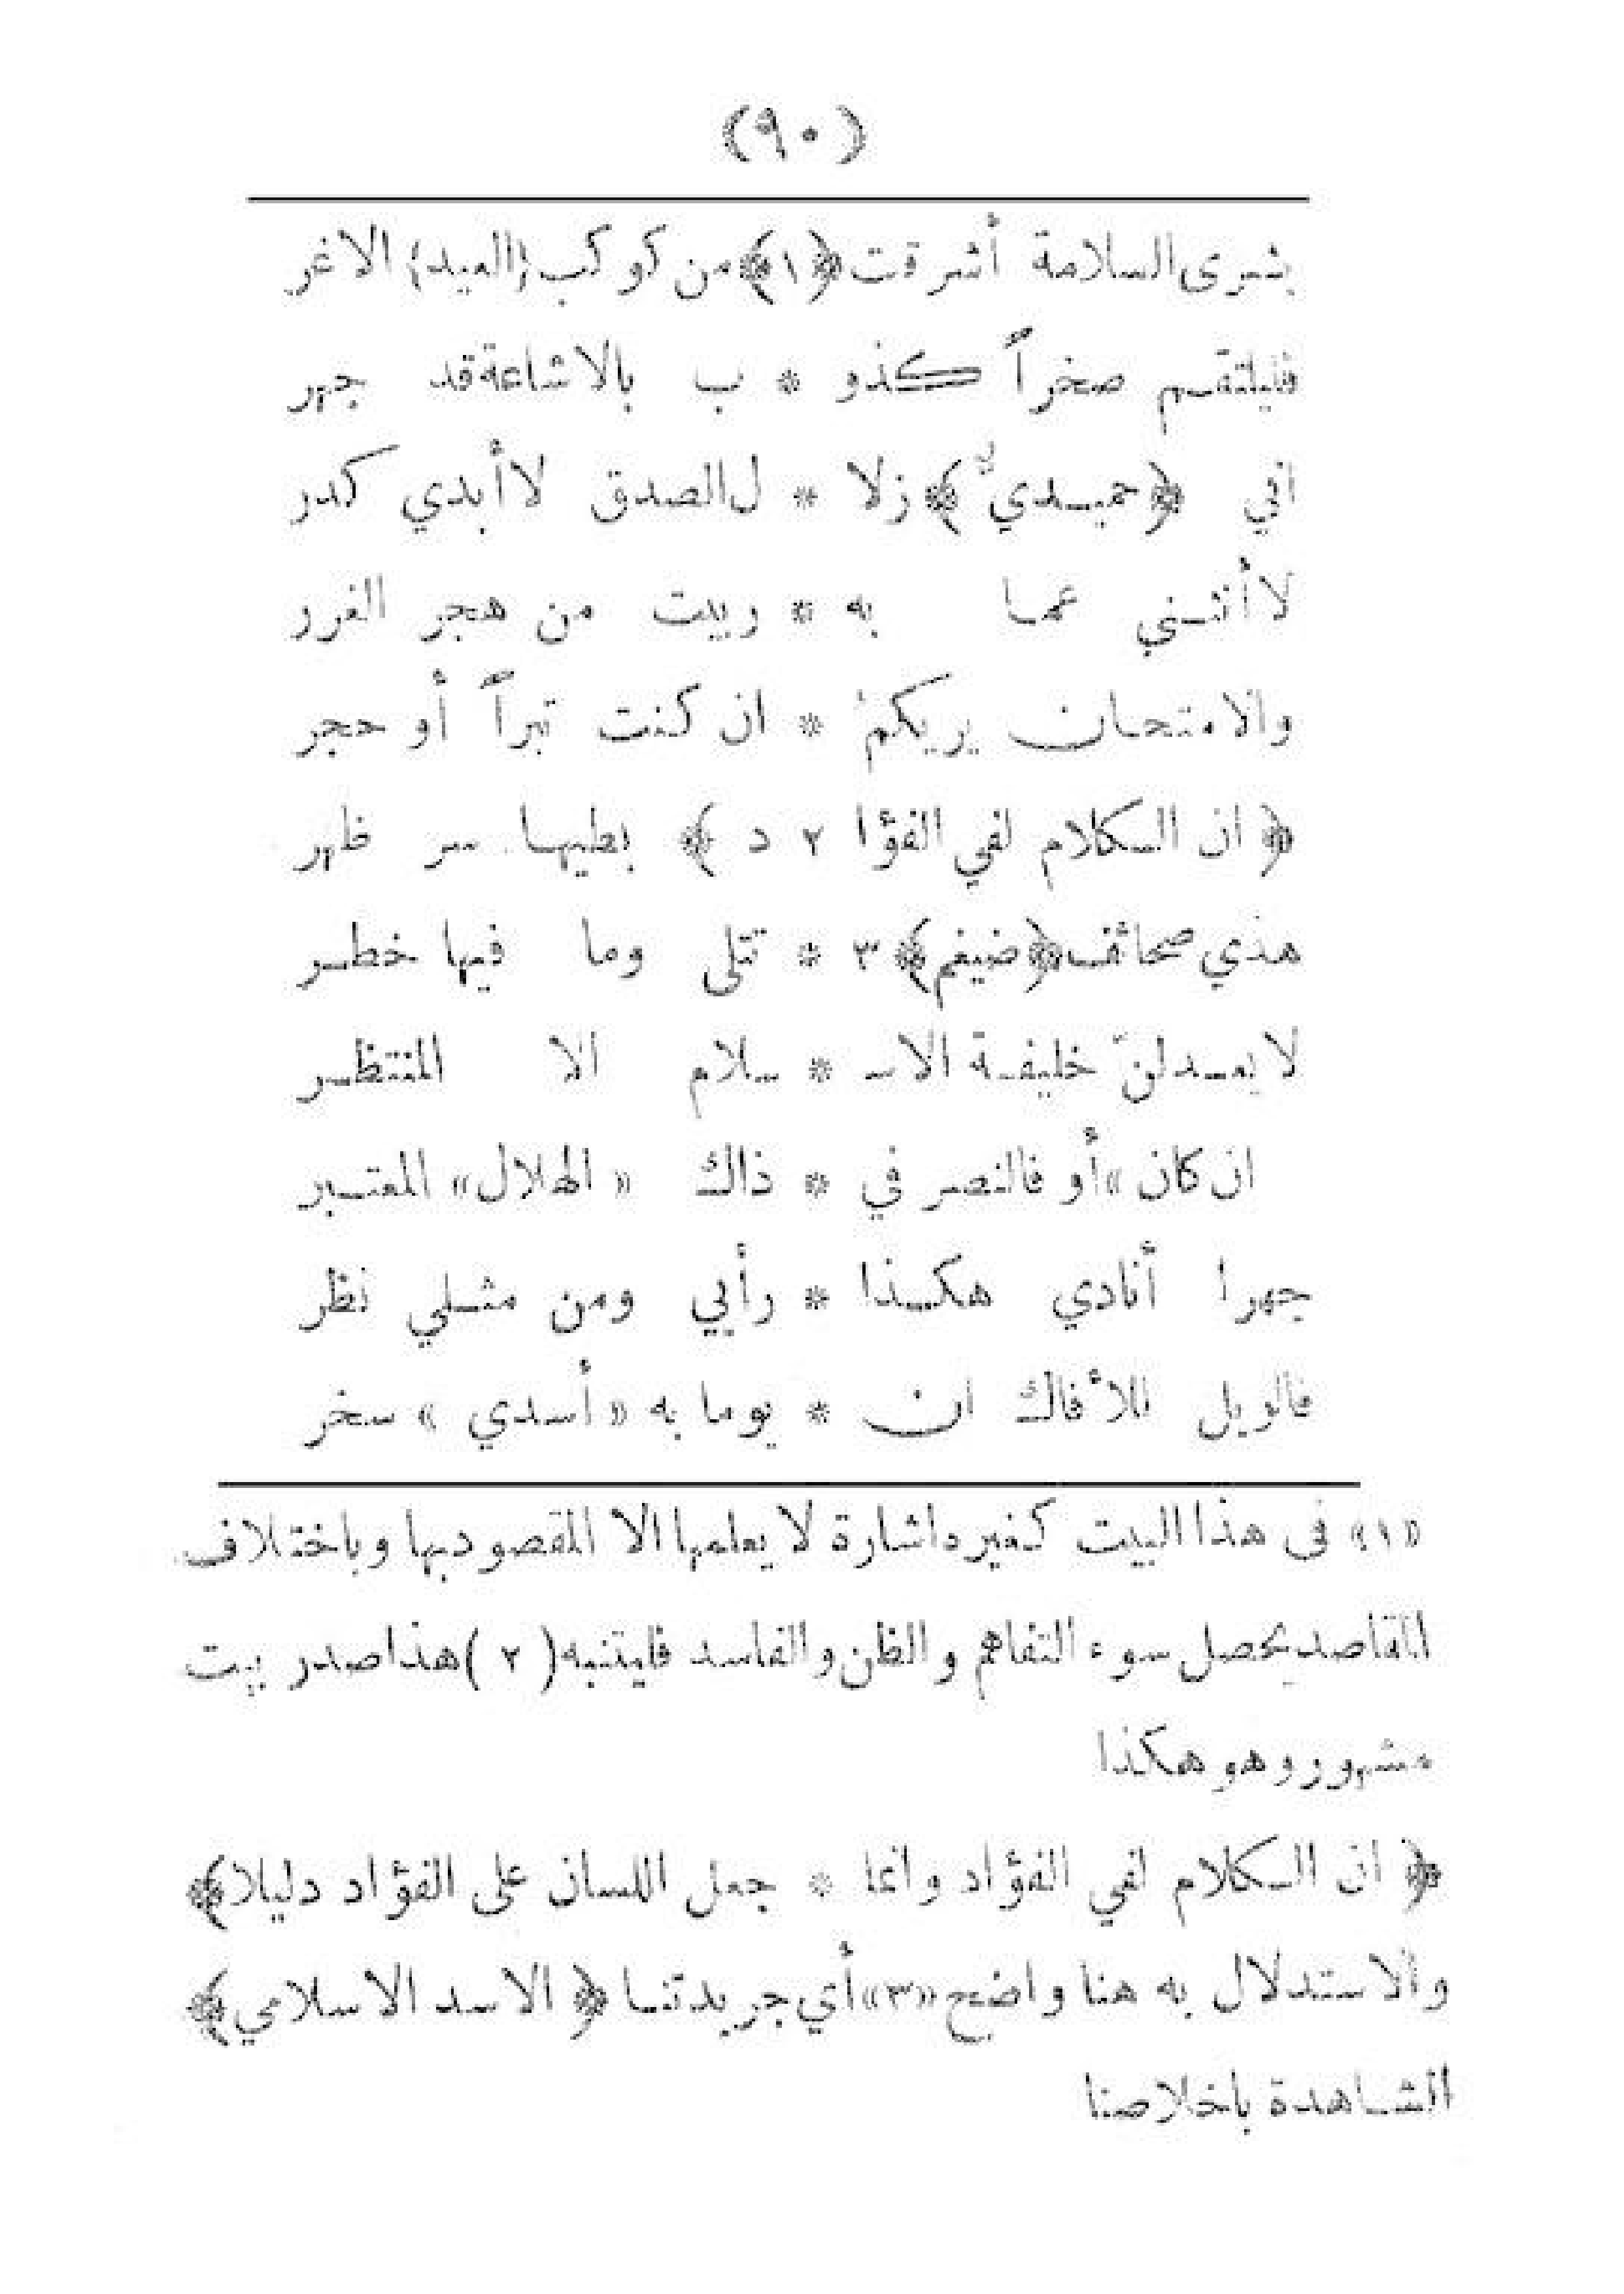 (٩٠)
بشرى السلامة أشرقت ﴿١﴾ من كوكب {العيد} الاغر
فليلتقم صخراً كذو * ب بالاشاعة قد جهر
اني ﴿حميدي﴾ زلا * ل الصدق لا أبدي كدر
لا أنثني عما به * ربيت من هجر الغرر
والامتحان يريكم * ان كنت تبراً أو حجر
﴿ ان الكلام لفي الفؤا ٢ د ﴾ بطيها سر ظهر
هذي صحائف ﴿ضيغم﴾ ٣ * تتلى وما فيها خطر
لا يعدلنّ خليفة الاس * سلام الا المنتظر
ان كان » أو فالنصر في * ذاك « الهلال» المعتبر
جهرا أنادي هكذا * رأيي ومن مثلي نظر
فالويل للأفاك ان * يوما به « أسدي » سخر
«١» فى هذا البيت كغيره اشارة لا يعلمها الا المقصود بها وباختلاف
المقاصد يحصل سوء التفاهم والظن والفاسد فليتنبه (٢) هذا صدر بيت
مشهور وهو هكذا
﴿ ان الكلام لفي الفؤاد وانما * جعل اللسان على الفؤاد دليلا﴾
والاستدلال به هنا واضح «٣» أي جريدتنا ﴿ الاسد الاسلامي﴾
الشاهدة باخلاصنا